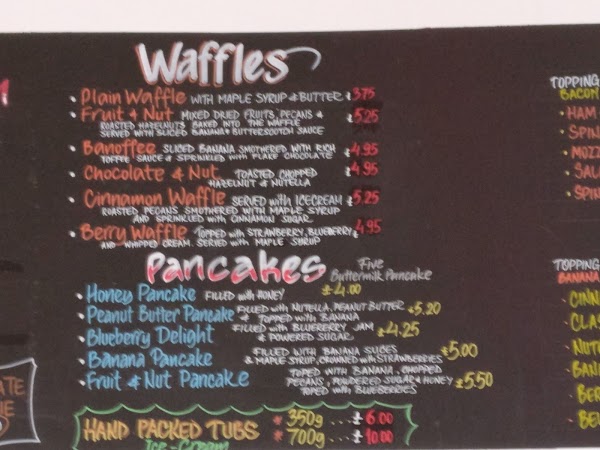 Waffles
• Plain Waffle WITH MAPLE SYRUP & BUTTER £3.75
• Fruit & Nut MIXED DRIED FRUITS, PECANS & £5.25
ROASTED HAZELNUTS BAKED INTO THE WAFFLE
SERVED WITH SLICED BANANA & BUTTERSCOTCH SAUCE
• Banoffee SLICED BANANA SMOTHERED WITH RICH £4.95
TOFFEE SAUCE & SPRINKLED with FLAKE CHOCOLATE
• Chocolate & Nut TOASTED CHOPPED £4.95
HAZELNUT & NUTELLA
• Cinnamon Waffle SERVED with ICECREAM £5.25
ROASTED PECANS SMOTHERED WITH MAPLE SYRUP
AND SPRINKLED with CINNAMON SUGAR
• Berry Waffle TOPPED with STRAWBERRY, BLUEBERRY £4.95
AND WHIPPED CREAM. SERVED with MAPLE SYRUP
Pancakes Five
Buttermilk Pancake
• Honey Pancake FILLED with HONEY £4.00
• Peanut Butter Pancake FILLED with NUTELLA, PEANUT BUTTER £5.20
& TOPPED with BANANA
• Blueberry Delight FILLED with BLUEBERRY JAM £4.25
& POWDERED SUGAR
• Banana Pancake FILLED with BANANA SLICES £5.00
& MAPLE SYRUP, CROWNED with STRAWBERRIES
• Fruit & Nut Pancake TOPED WITH BANANA, CHOPPED
PECANS, POWDERED SUGAR & HONEY £5.50
TOPED with BLUEBERRIES
HAND PACKED TUBS * 350g ... £ 6.00
* 700g ... £ 10.00
Ice-Cream
TOPPING
BACON
• HAM
• SPIN
• MOZZ
• SAL
• SPIN
TOPPING
BANANA
• CINN
• CLAS
• NUT
• BAN
• BER
• BEL
ATE
IE